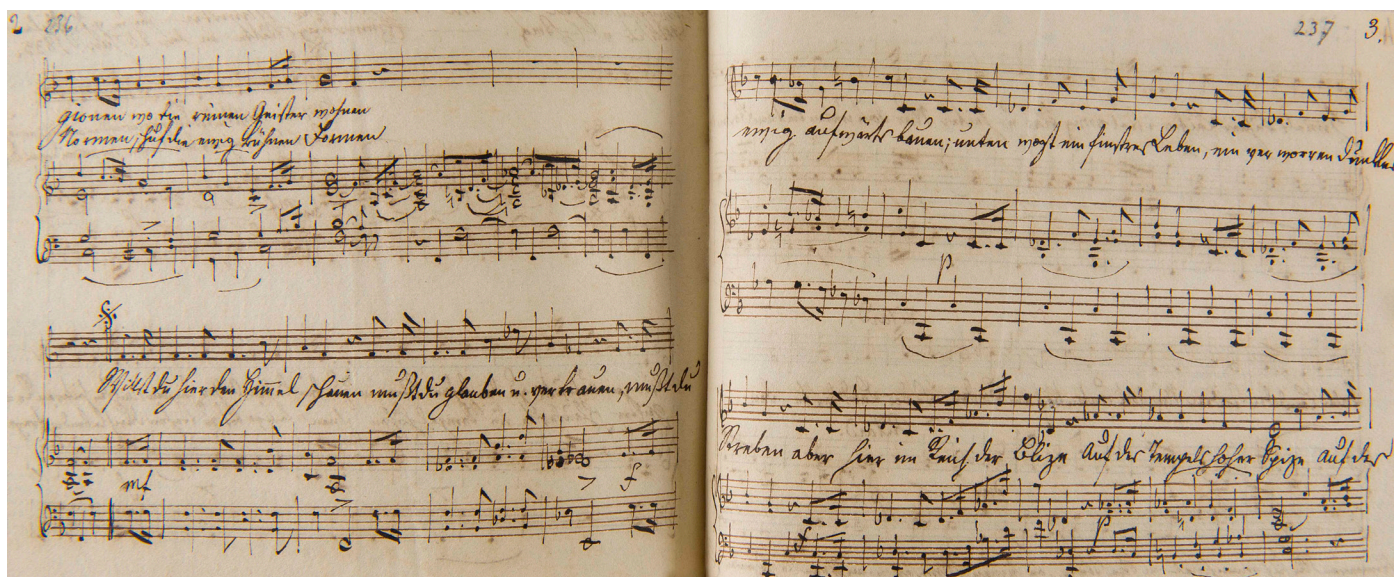 2 236
gionen wo die reinen Geister wohnen
Normen, schuf die ewig kühnen Formen
Willst du hier den Himmel schauen mußt du glauben u. vertrauen, mußt du
mf
f
237 3.
ewig aufwärts bauen; unten wogt ein finstres Leben, ein verworren dunkles
p
Streben aber hier im Reich der Blize Auf des Tempels hoher Spize auf des
p